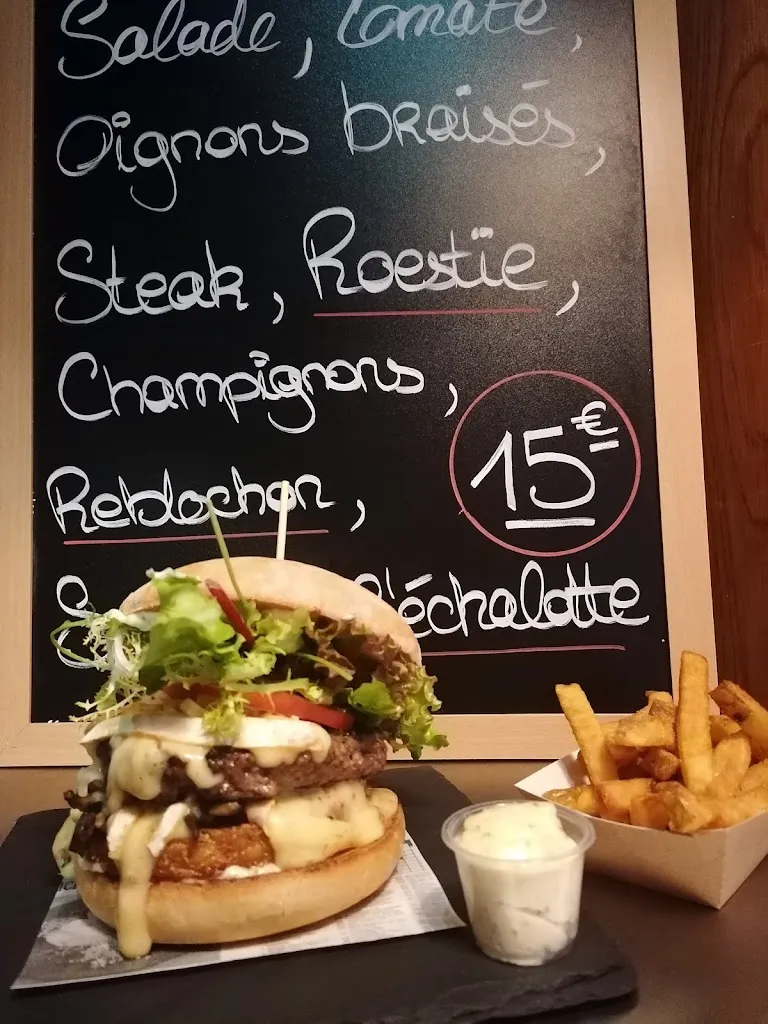 Salade, Tomate,
Oignons braisés,
Steak, Roestïe,
Champignons,
Reblochon,
15€
l'échalotte